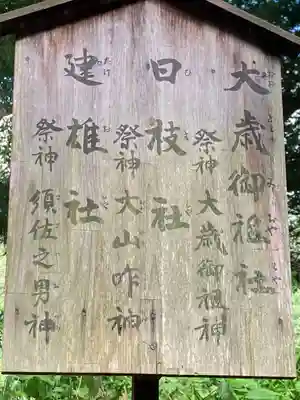 大歳御祖社
祭神 大歳御祖神
日枝社
祭神 大山咋神
建雄社
祭神 須佐之男神